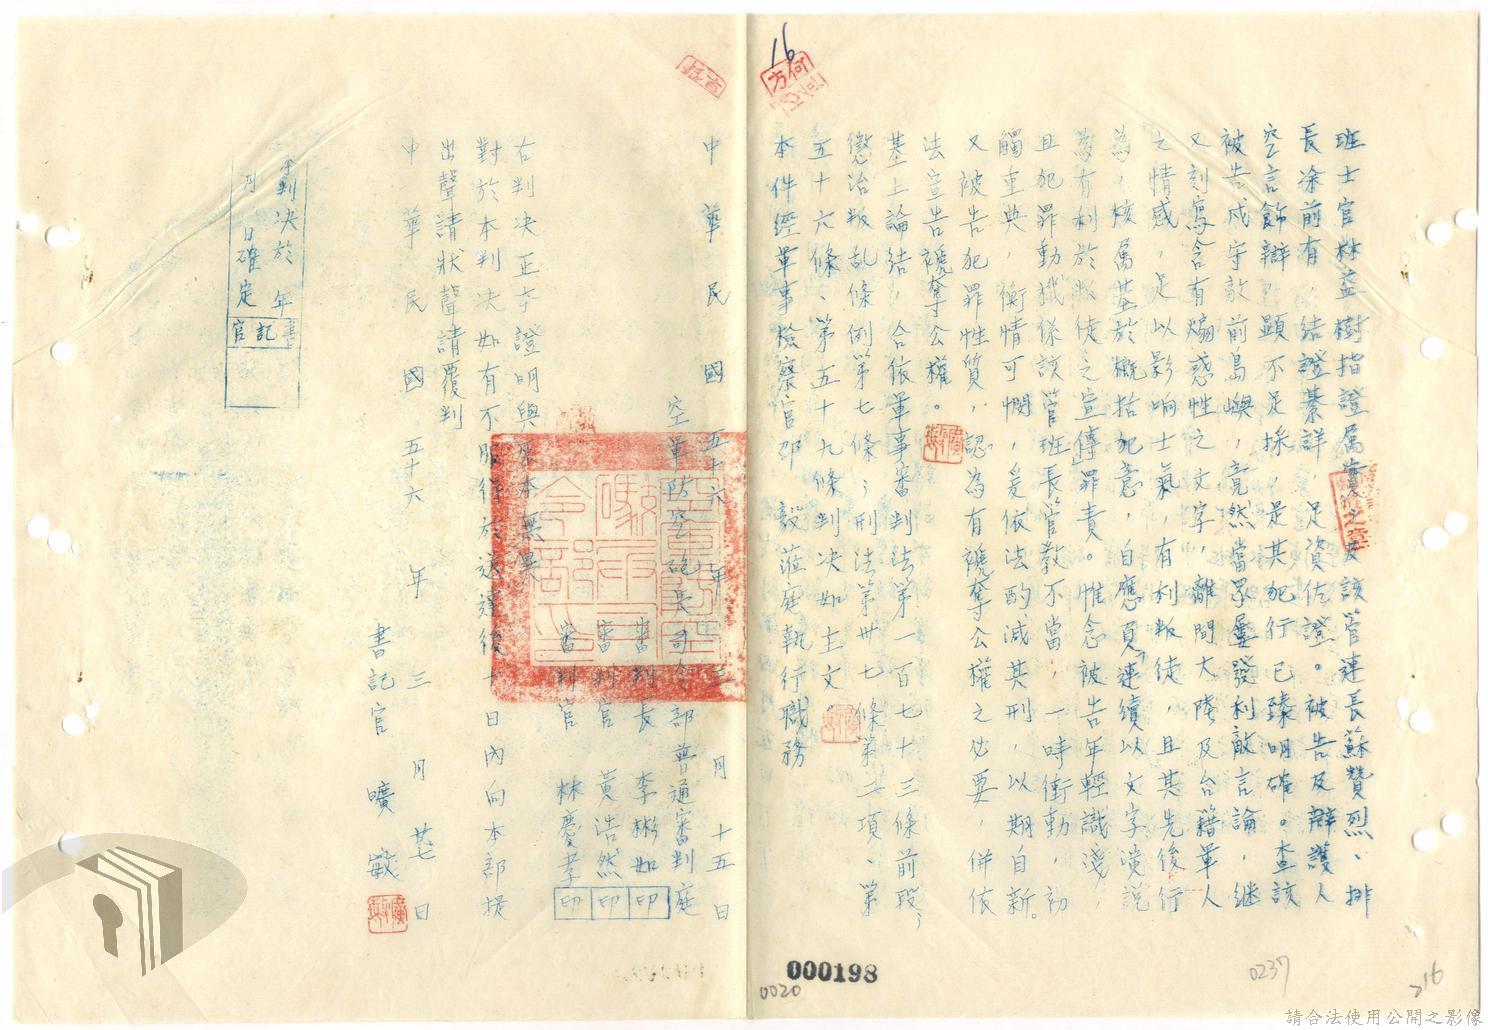 16
班士官林益樹指證屬實之及該管連長蘇贊烈、排
長涂前有　結證綦詳，足資佐證。被告及辯護人
空言飾辯　顯不足採，是其犯行已臻明確。查該
被告戍守敌前島嶼，竟然當眾屢發利敵言論，継
又刻寫含有煽惑性之文字，離間大陸及台籍軍人
之情感，足以影响士氣，有利叛徒，且其先後行
為，核屬基於概括犯意，自應負「連續以文字演說
為有利於叛徒之宣傳」罪責。惟念被告年輕識淺，
且犯罪動機係該管班長管教不當，一時衝動，初
觸重典，衡情可憫，爰依法酌減其刑，以期自新。
又被告犯罪性質，認為有褫奪公權之必要，併依
法宣告褫奪公權。
基上論結，合依軍事審判法第一百七十三條前段，
懲治叛乱條例第七條，刑法第卅七條第二項、第
五十六條、第五十九條判决如主文。
本件經軍事檢察官邵　毅蒞庭執行職務
中華民國五十六年三月十五日
空軍防空砲兵司令部普通審判庭
審判長　李彬如　印
審判官　黃浩然　印
審判官　林慶孝　印
右判决正本證明與原本無異
對於本判决如有不服得於送達後十日內向本部提
出聲請狀聲請覆判
中華民國五十六年三月廿七日
書記官　曠　敏
本判决於　年
月　日確定
書記官
000198
0020
0237
216
請合法使用公開之影像